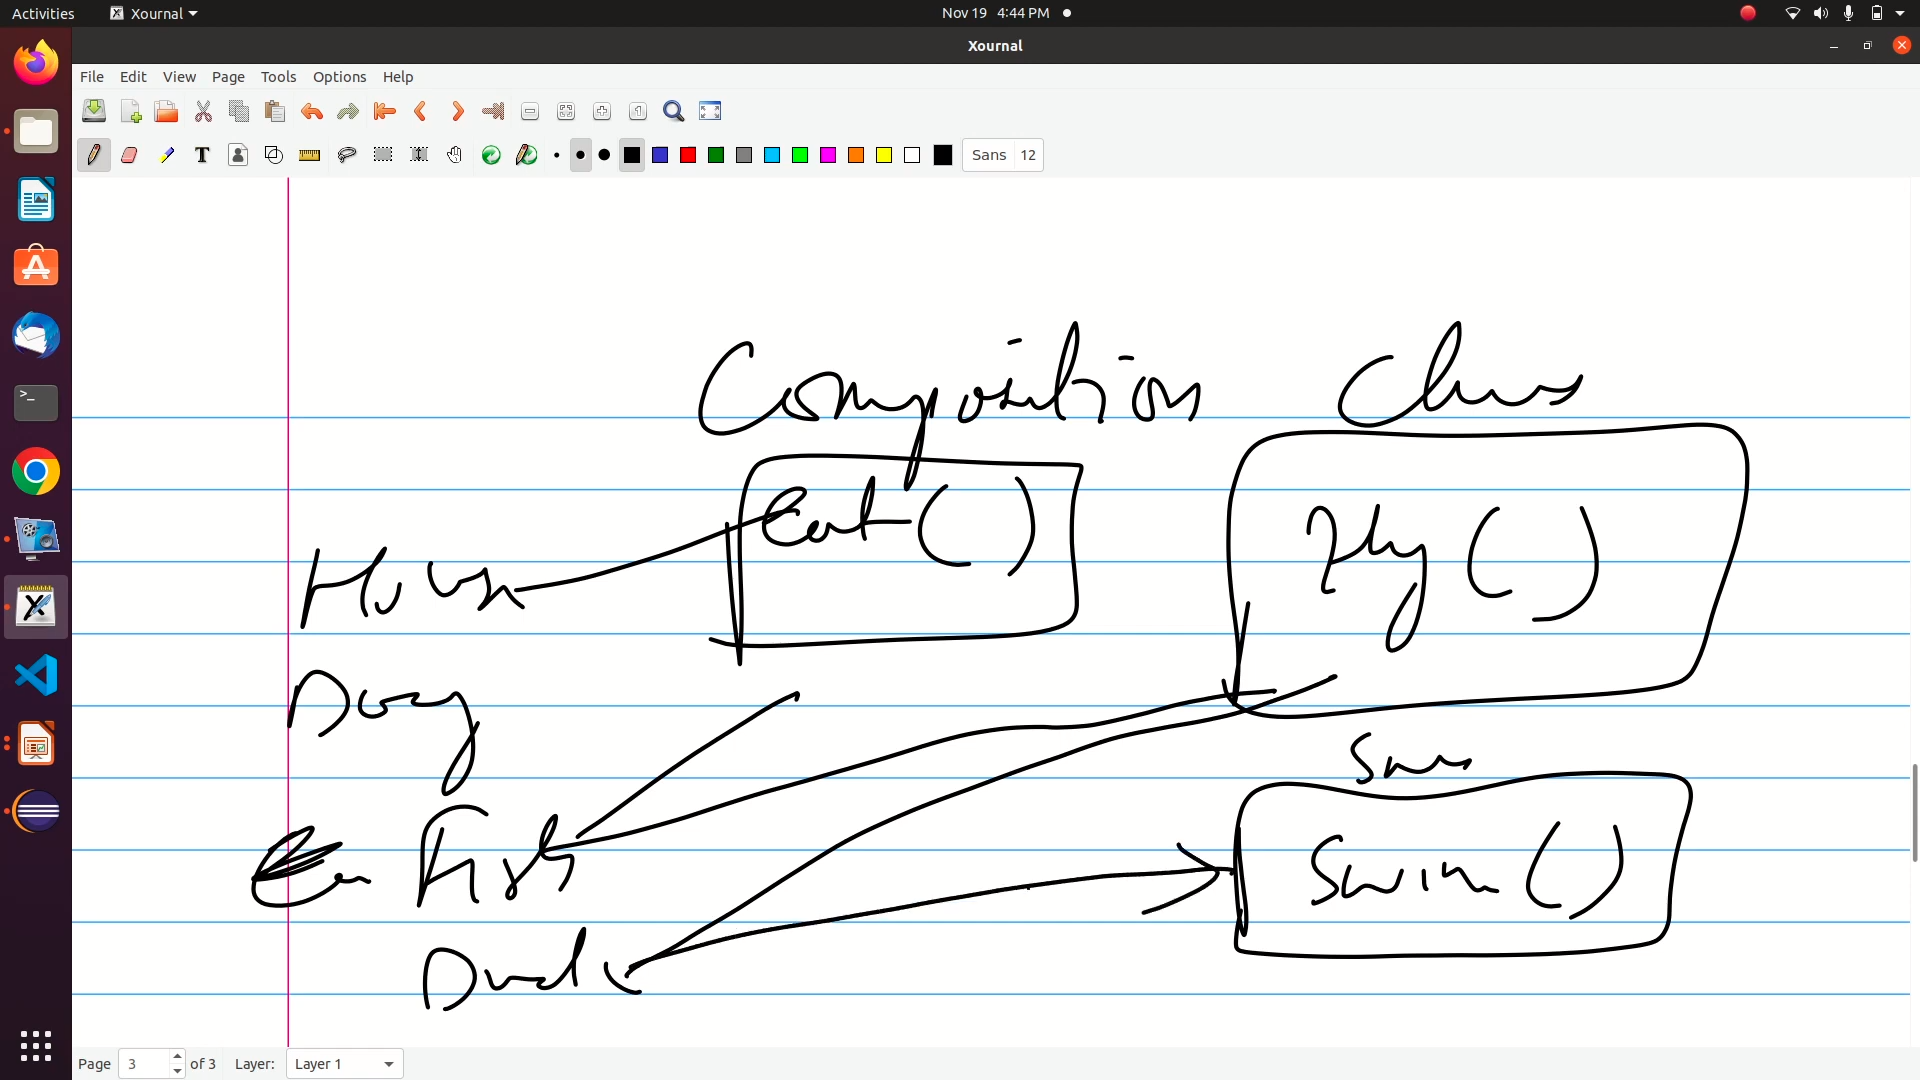 Activities Xournal Nov 19 4:44 PM
Xournal
File Edit View Page Tools Options Help
T Sans 12
Composition Class
Eat()
Fly()
Horse
Dog
Swim()
Fish
Duck
Page 3 of 3 Layer: Layer 1